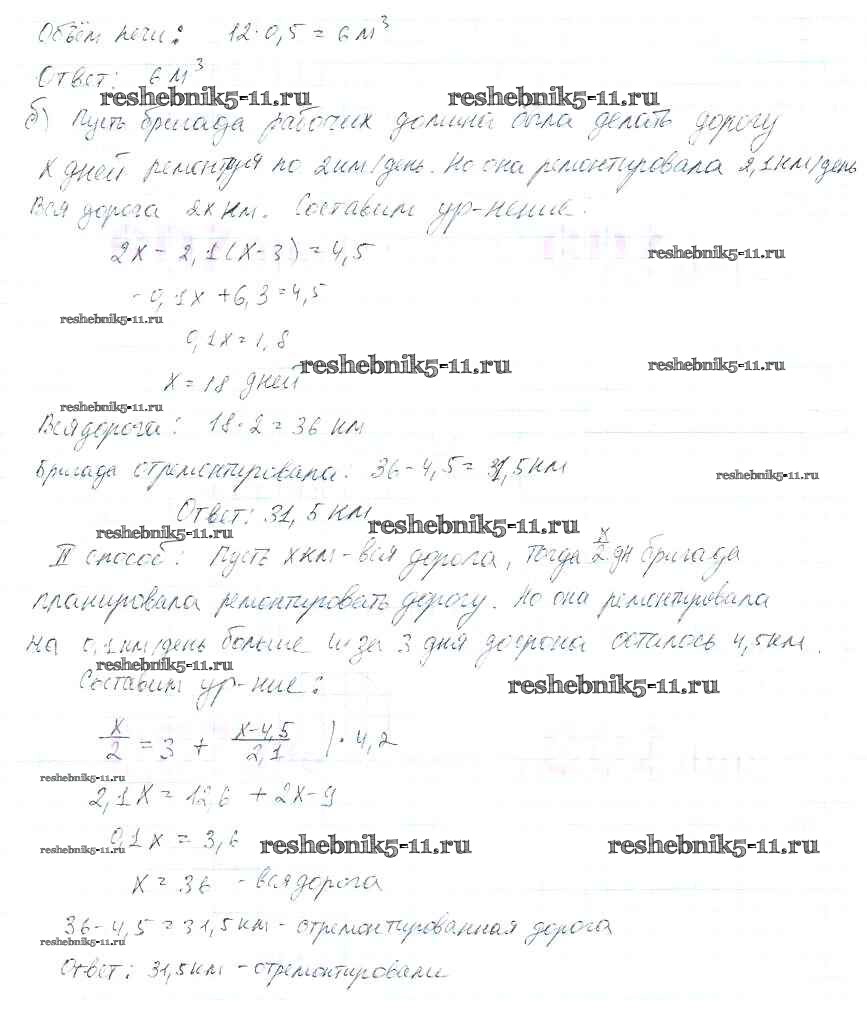 Объём печи: 12·0,5 = 6 м³
Ответ: 6 м³
reshebnik5-11.ru reshebnik5-11.ru
б) Пусть бригада рабочих должна была делать дорогу
x дней ремонтируя по 2км/день. Но она ремонтировала 2,1км/день
Вся дорога 2x км. Составим ур-нение:
2x - 2,1(x-3) = 4,5
reshebnik5-11.ru
-0,1x + 6,3 = 4,5
reshebnik5-11.ru
0,1x = 1,8
reshebnik5-11.ru reshebnik5-11.ru
x = 18 дней
reshebnik5-11.ru
Вся дорога: 18·2 = 36 км
Бригада отремонтировала: 36-4,5 = 31,5 км
reshebnik5-11.ru
Ответ: 31,5 км
reshebnik5-11.ru reshebnik5-11.ru
II способ: Пусть x км - вся дорога, тогда x/2 дн бригада
планировала ремонтировать дорогу. Но она ремонтировала
на 0,1км/день больше и за 3 дня до срока осталось 4,5км.
reshebnik5-11.ru
Составим ур-ние:
reshebnik5-11.ru
x/2 = 3 + (x-4,5)/2,1 |·4,2
reshebnik5-11.ru
2,1x = 12,6 + 2x - 9
0,1x = 3,6
reshebnik5-11.ru reshebnik5-11.ru reshebnik5-11.ru
x = 36 - вся дорога
36-4,5 = 31,5 км - отремонтированная дорога
reshebnik5-11.ru
Ответ: 31,5км - отремонтировали